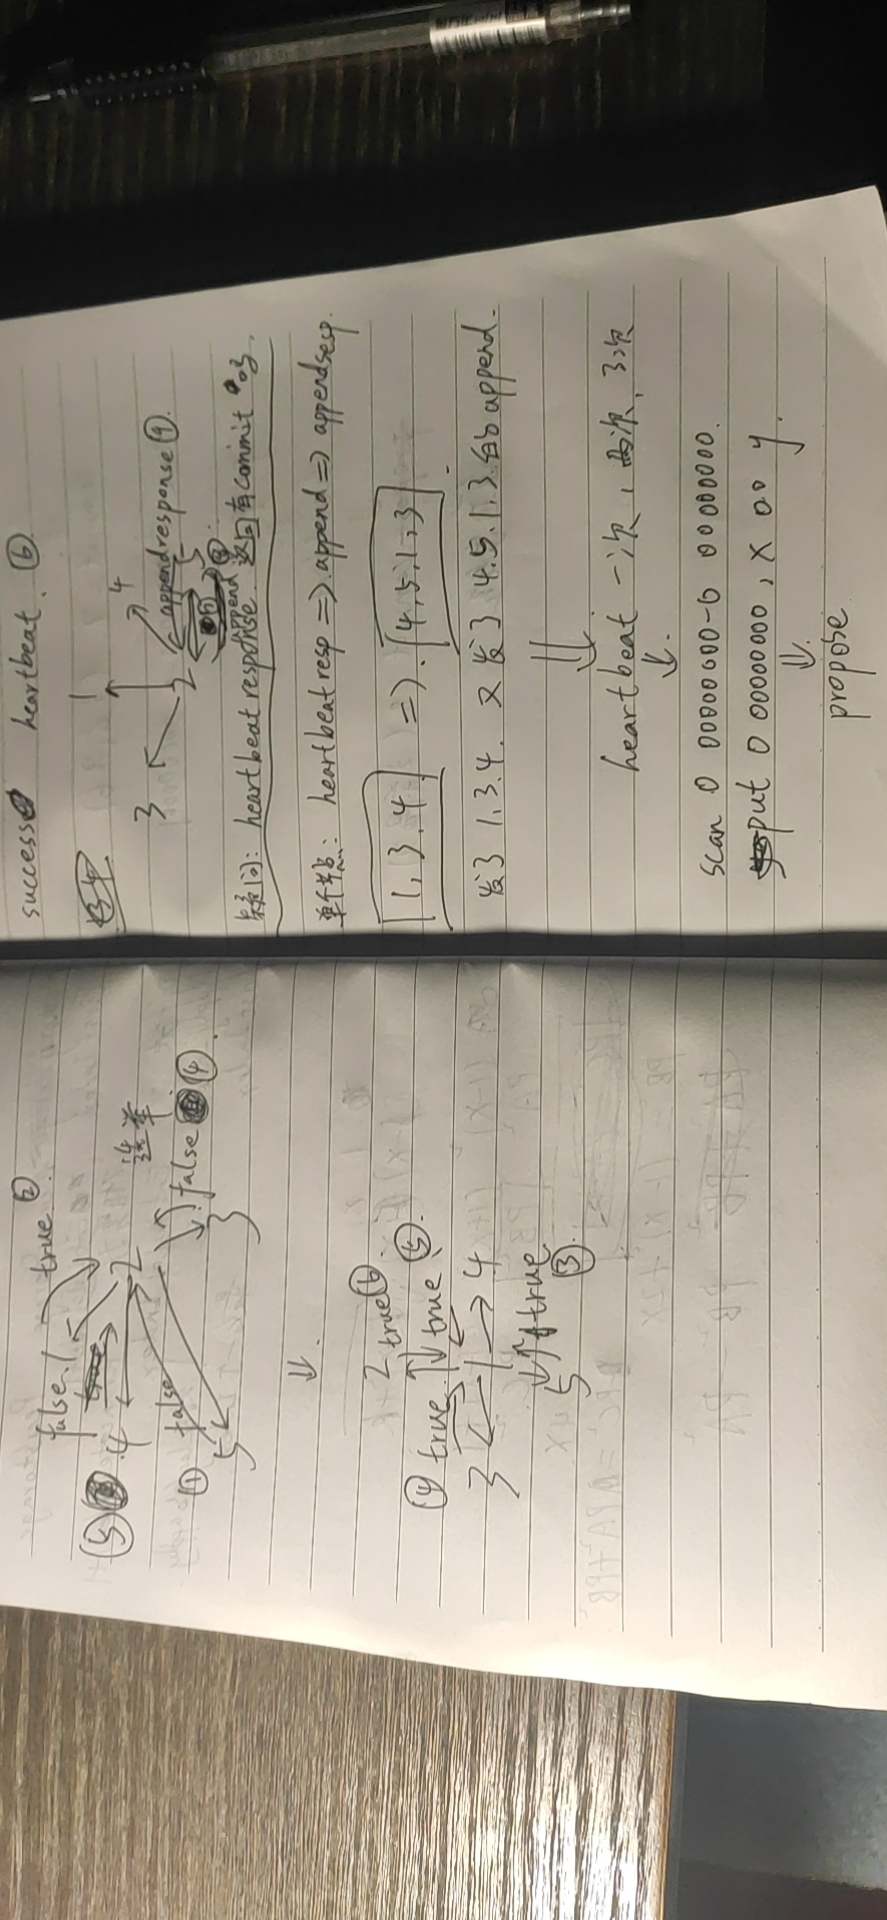 true ②
false 1
⑤ 4
2 选举
false ④
① false
5
3
⇓
2 true ⑥
④ true true ⑤
3 1 4
true
5 ③
success heartbeat. ⑥
1
3 4
2 appendresponse ⑨
5
append ⑧
疑问: heartbeat response 返回有commit 吗.
单个节点: heartbeat resp => append => appendresp.
1, 3, 4 => 4, 5, 1, 3
发了 1.3.4. 又发了 4.5.1.3 的 append.
⇓
heartbeat 一次, 两次, 3次
↓
scan 0 00000000-0 00000000.
put 0 00000000, x 00 y.
⇓
propose